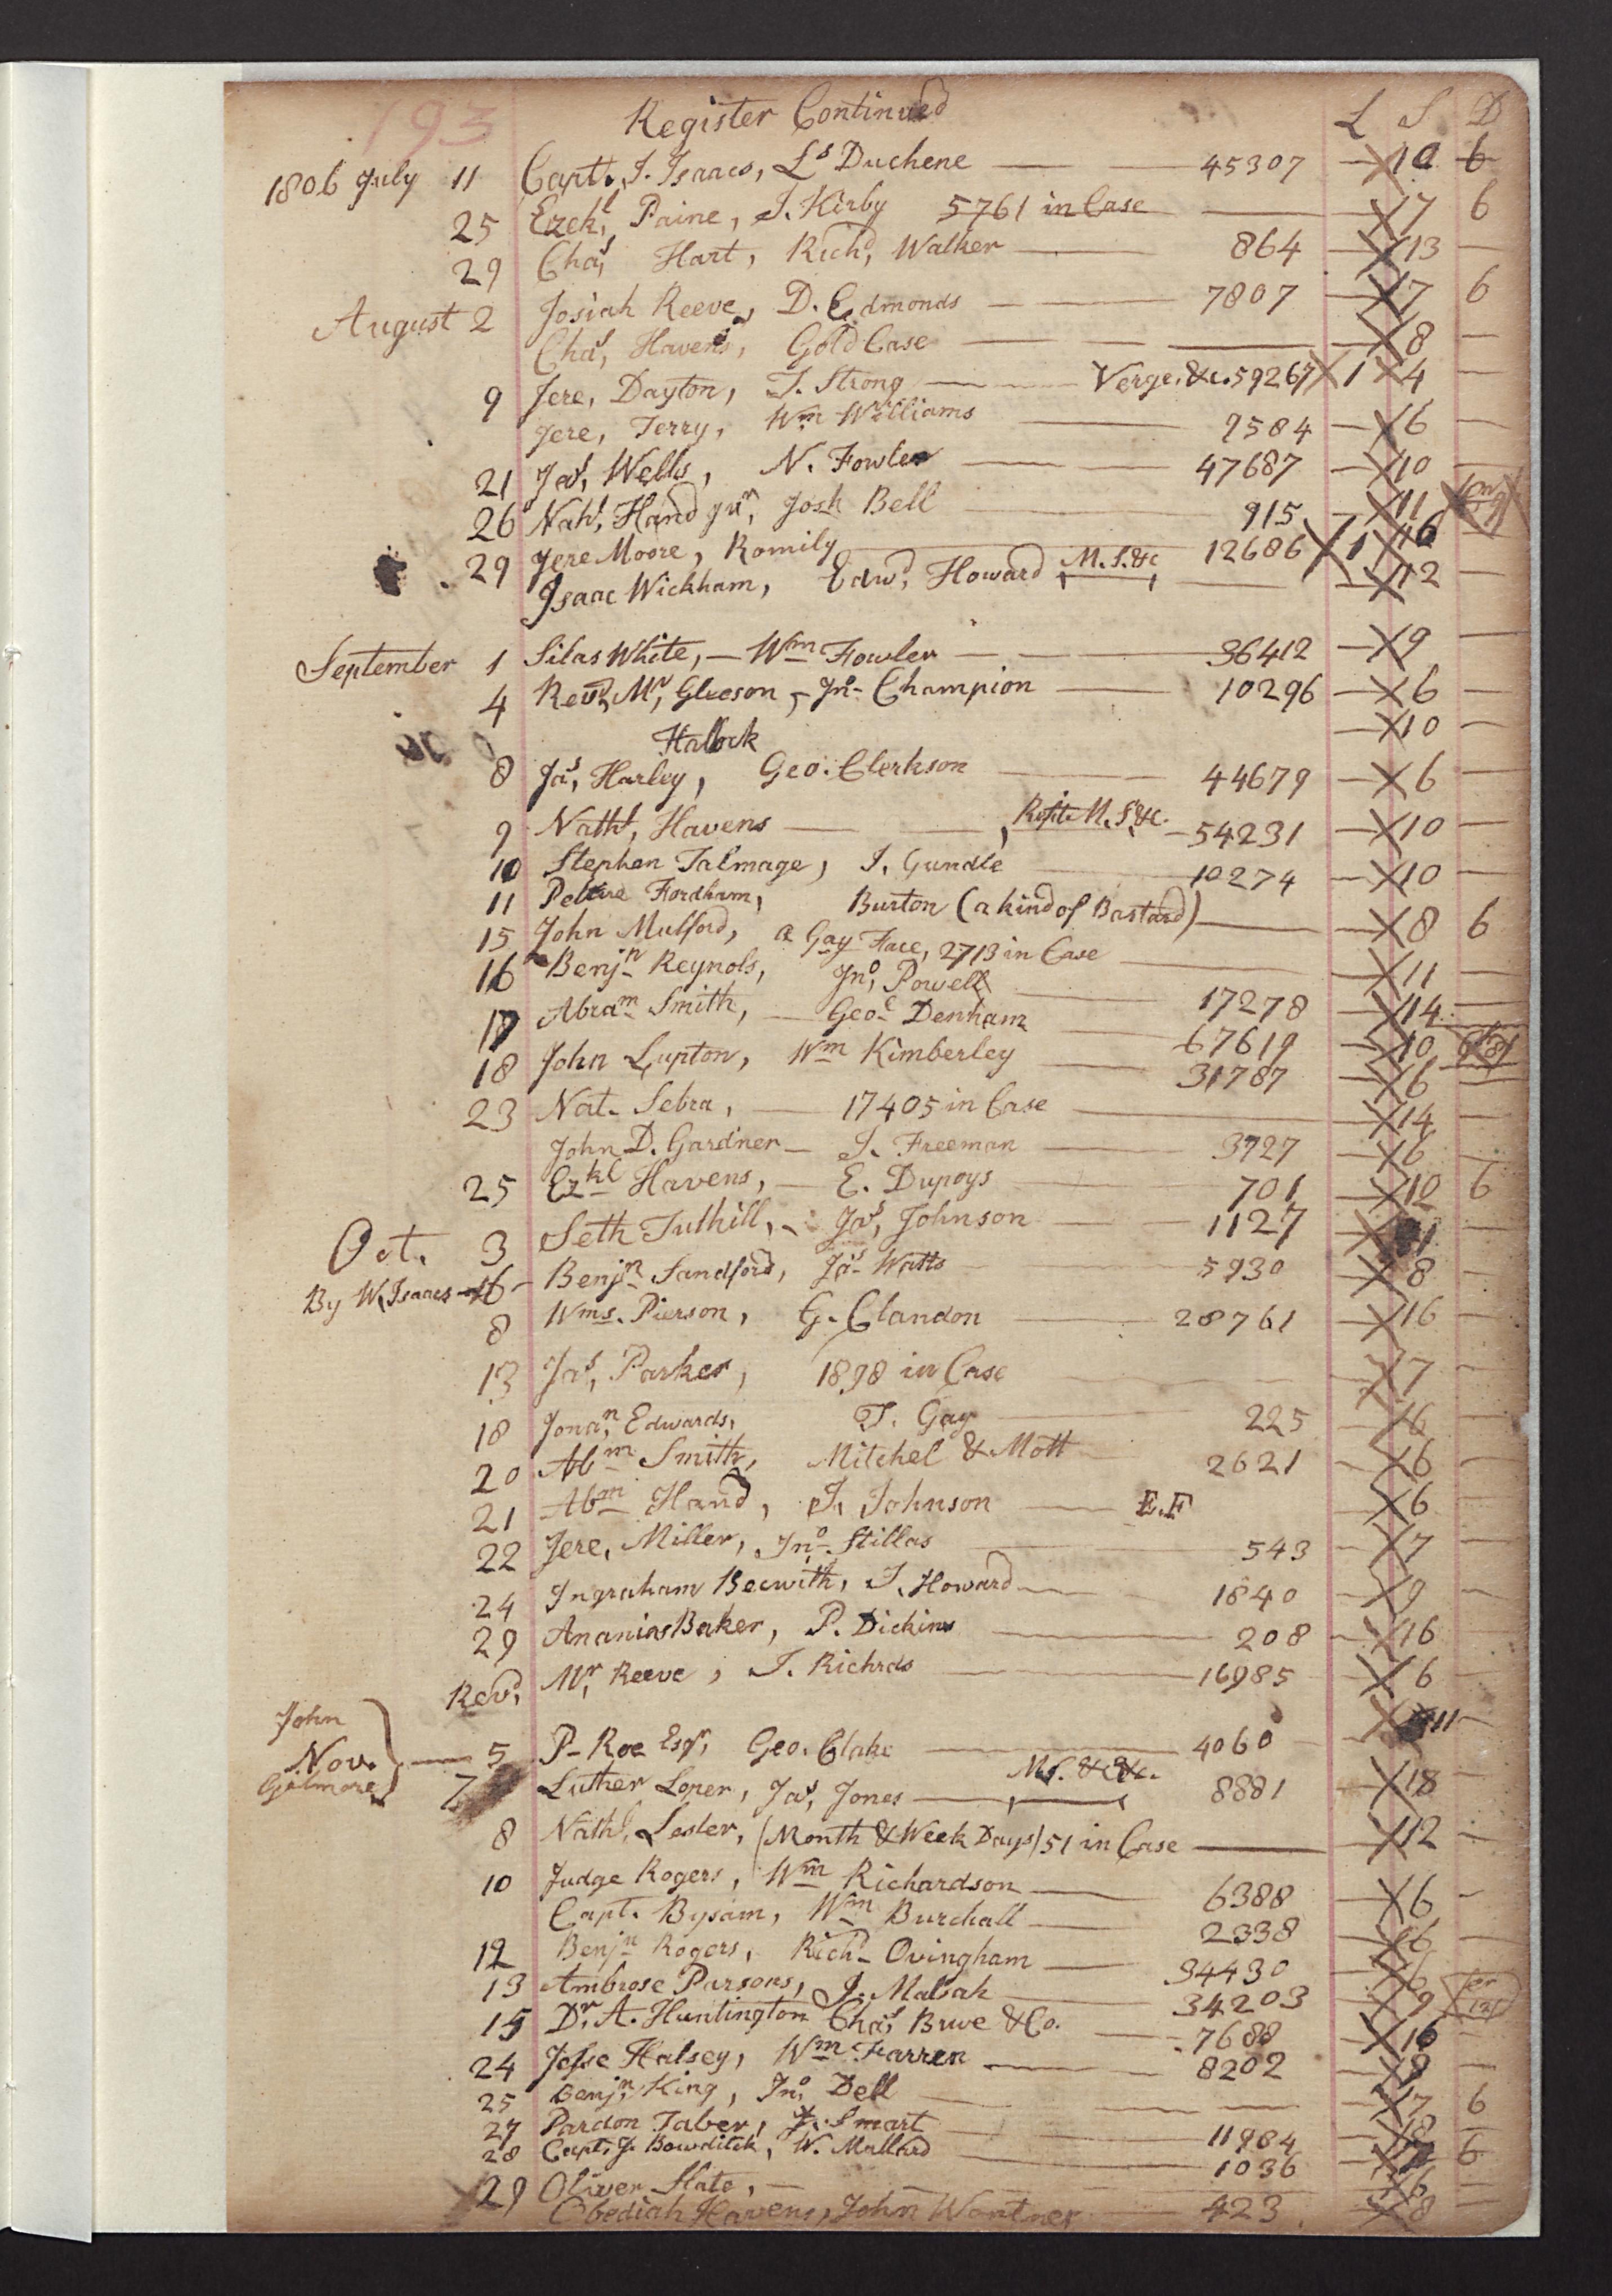 193 Register Continued L S D
1806 July 11 Capt. J. Isaacs, Ls Duchene — 45307 — 10 6
25 Ezekl, Paine, J. Kirby 5761 in Case — 7 6
29 Chas, Hart, Richd, Walker — 864 — 13 —
August 2 Josiah Reeve, D. Edmonds — 7807 — 17 6
Chas, Havens, Gold Case — 8 —
9 Jere, Dayton, J. Strong — Verge, &c. 59267 1 4 —
Jere, Terry, Wm Williams — 9584 — 6 —
21 Jas, Wells, N. Fowler — 47687 — 10 —
26 Nahl, Hand Jur, Josh Bell — 915 — 11
29 Jere Moore, Romily — 12686 1 16 —
Isaac Wickham, Edwd, Howard M. S. &c — 12 —
September 1 Silas White, — Wm Fowler — 36412 — 9 —
4 Revd, Mr, Gleeson, Jno Champion — 10296 — 6 —
— 10 —
Halock
8 Jas, Harley, Geo. Clerkson — 44679 — 6 —
9 Nathl, Havens — M. S. &c. — 54231 — 10 —
10 Stephen Talmage, J. Gundle — 10274 — 10 —
11 Fordham, Burton (a kind of Bastard) — 8 6
15 John Mulford, a Gay Face, 2713 in Case — 11 —
16 Benjn Reynols, Jno, Powell — 17278 — 14 —
17 Abram Smith, — Geoe Denham — 67619 — 10
18 John Lupton, Wm Kimberley — 31787 — 6 —
23 Nat. Sebra, — 17405 in Case — 14 —
John D. Gardner — J. Freeman — 3727 — 6 —
25 Ezkl Havens, — E. Dupoys — 701 — 10 6
Oct. 3 Seth Tuthill, — Jas, Johnson — 1127 —
By W. Isaacs — 6 — Benjn Sandford, Jas Watts — 5930 — 8 —
8 Wms. Pierson, G. Clandon — 28761 — 16 —
13 Jas, Parker, 1898 in Case — 7 —
18 Jonan, Edwards, T. Gay — 225 6 —
20 Abm Smith, Mitchel & Mott — 2621 — 6 —
21 Abm Hand, J. Johnson — E.F 6 —
22 Jere, Miller, Jno. Stillas — 543 — 7 —
24 Ingraham Becwith, J. Howard — 1840 — 9 —
29 Ananias Baker, P. Dickins — 208 — 16 —
Revd, Mr, Reeve, J. Richrds — 16985 — 6 —
John
11 —
Nov. — 5 P. Roe Esqr, Geo. Clake — 4060 —
Gilmore 7 Luther Loper, Jas, Jones — M S. &c &c. 8881 18 —
8 Nathl, Lester, (Month & Week Days) 51 in Case — 12 —
10 Judge Rogers, Wm Richardson — 6388 — 6 —
Capt. Bysam, Wm Burchall — 2338 — 6 —
12 Benjn Rogers, Richd Ovingham — 34430 — 6
13 Ambrose Parsons, J. Mabah — 34203 — 9
15 Dr, A. Huntington Chas, Buve & Co. — 7688 — 16 —
24 Jesse Halsey, Wm Farren — 8202 — 9 —
25 Benjn, King, Jno, Dell — 17 6
27 Pardon Taber, Smart — 11984 — 18 —
28 Capt, J. Bowditch, W. Mallard — 1036 — 6
29 Oliver Slate, — 6 —
Obediah Havens, John Wontner — 423 8 —